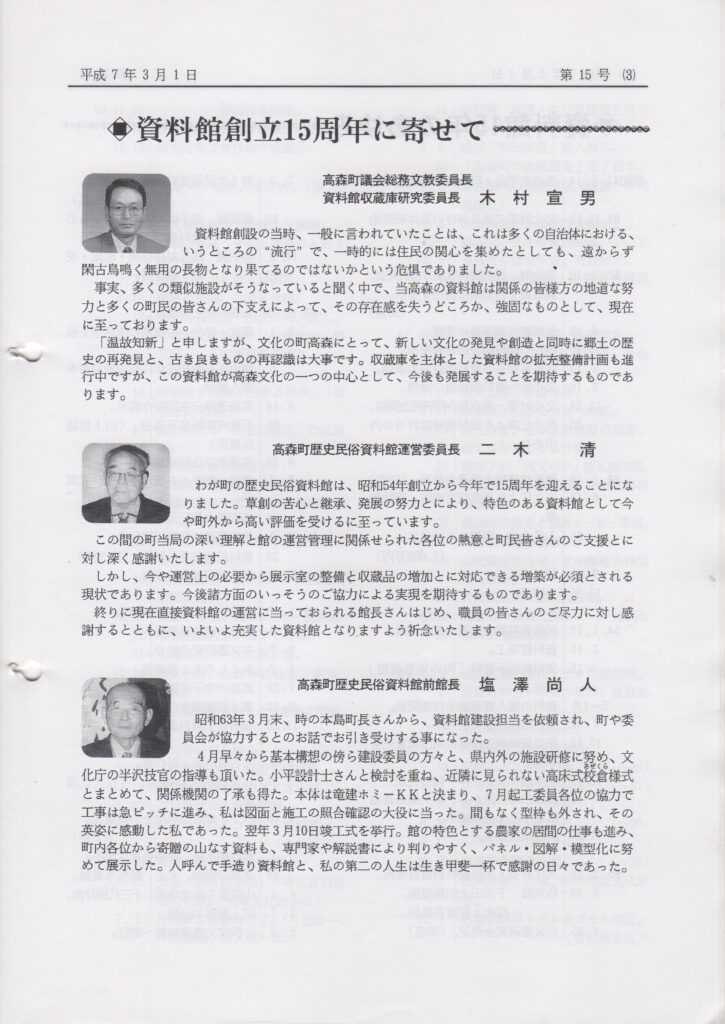 平成7年3月1日 第15号 (3)
資料館創立15周年に寄せて
高森町議会総務文教委員長
資料館収蔵庫研究委員長 木村宣男
資料館創設の当時、一般に言われていたことは、これは多くの自治体における、
いうところの“流行”で、一時的には住民の関心を集めたとしても、遠からず
閑古鳥鳴く無用の長物となり果てるのではないかという危惧でありました。
事実、多くの類似施設がそうなっていると聞く中で、当高森の資料館は関係の皆様方の地道な努
力と多くの町民の皆さんの下支えによって、その存在感を失うどころか、強固なものとして、現在
に至っております。
「温故知新」と申しますが、文化の町高森にとって、新しい文化の発見や創造と同時に郷土の歴
史の再発見と、古き良きものの再認識は大事です。収蔵庫を主体とした資料館の拡充整備計画も進
行中ですが、この資料館が高森文化の一つの中心として、今後も発展することを期待するものであ
ります。
高森町歴史民俗資料館運営委員長 二木 清
わが町の歴史民俗資料館は、昭和54年創立から今年で15周年を迎えることにな
りました。草創の苦心と継承、発展の努力とにより、特色のある資料館として今
や町外から高い評価を受けるに至っています。
この間の町当局の深い理解と館の運営管理に関係せられた各位の熱意と町民皆さんのご支援とに
対し深く感謝いたします。
しかし、今や運営上の必要から展示室の整備と収蔵品の増加とに対応できる増築が必須とされる
現状であります。今後諸方面のいっそうのご協力による実現を期待するものであります。
終りに現在直接資料館の運営に当っておられる館長さんはじめ、職員の皆さんのご尽力に対し感
謝するとともに、いよいよ充実した資料館となりますよう祈念いたします。
高森町歴史民俗資料館前館長 塩澤尚人
昭和63年3月末、時の本島町長さんから、資料館建設担当を依頼され、町や委
員会が協力するとのお話でお引き受けする事になった。
4月早々から基本構想の傍ら建設委員の方々と、県内外の施設研修に努め、文
化庁の半沢技官の指導も頂いた。小平設計士さんと検討を重ね、近隣に見られない高床式校倉様式
あぜくら
とまとめて、関係機関の了承も得た。本体は竜建ホミーKKと決まり、7月起工委員各位の協力で
工事は急ピッチに進み、私は図面と施工の照合確認の大役に当った。間もなく型枠も外され、その
英姿に感動した私であった。翌年3月10日竣工式を挙行。館の特色とする農家の居間の仕事も進み、
町内各位から寄贈の山なす資料も、専門家や解説書により判りやすく、パネル・図解・模型化に努
めて展示した。人呼んで手造り資料館と、私の第二の人生は生き甲斐一杯で感謝の日々であった。